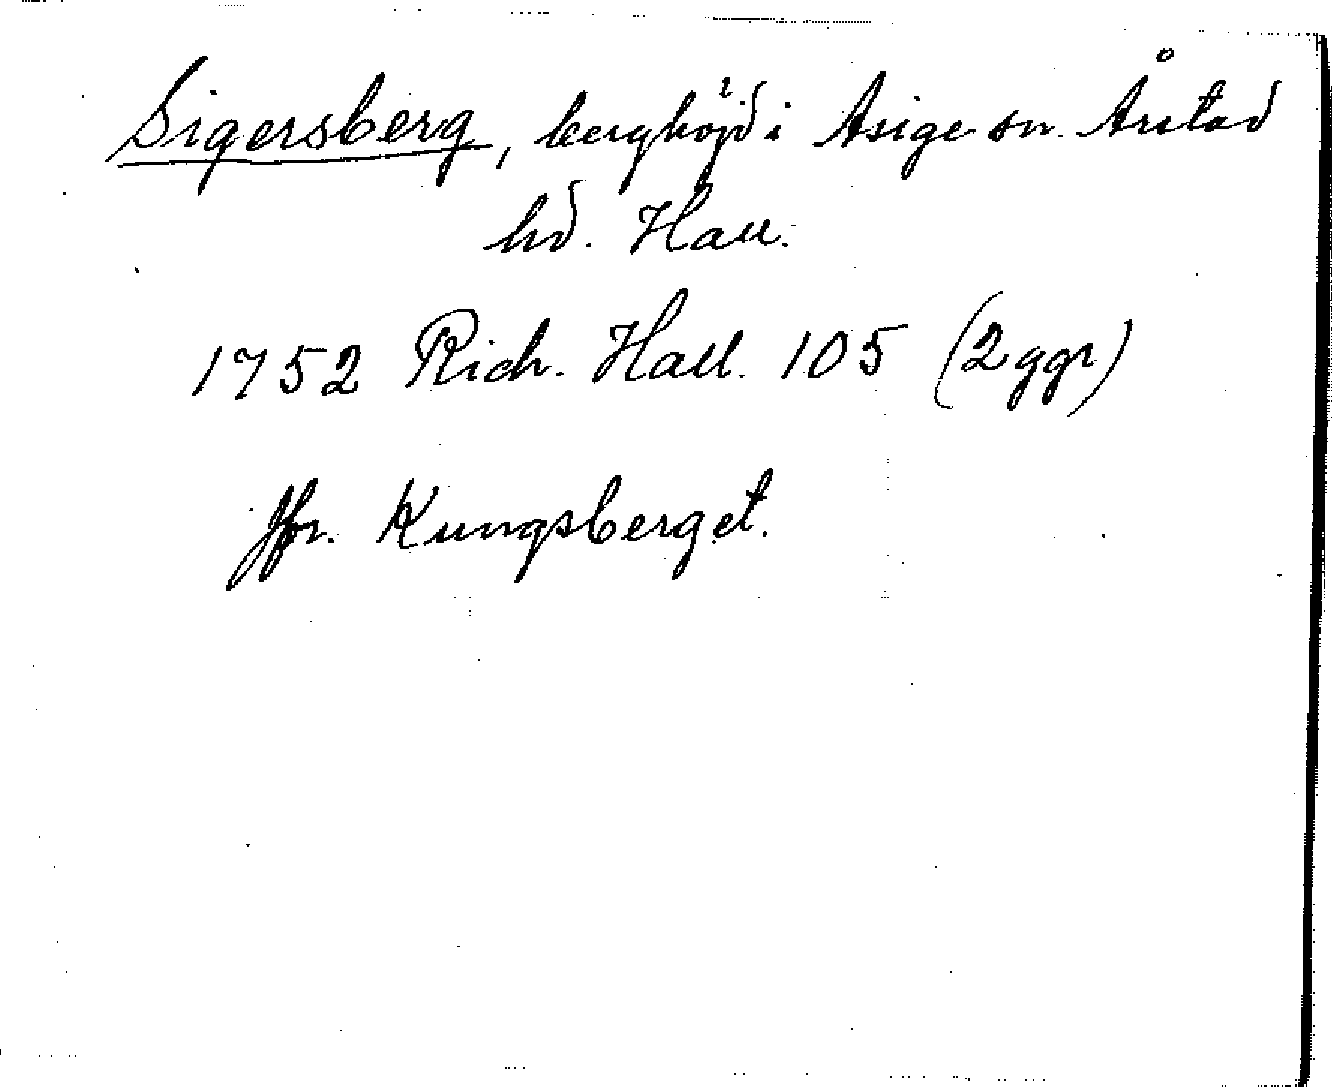 Sigersberg, berghöjd i Asige sn. Årstad
hd. Hall.
1752 Rich. Hall. 105 (2 ggr)
Jfr. Kungsberget.